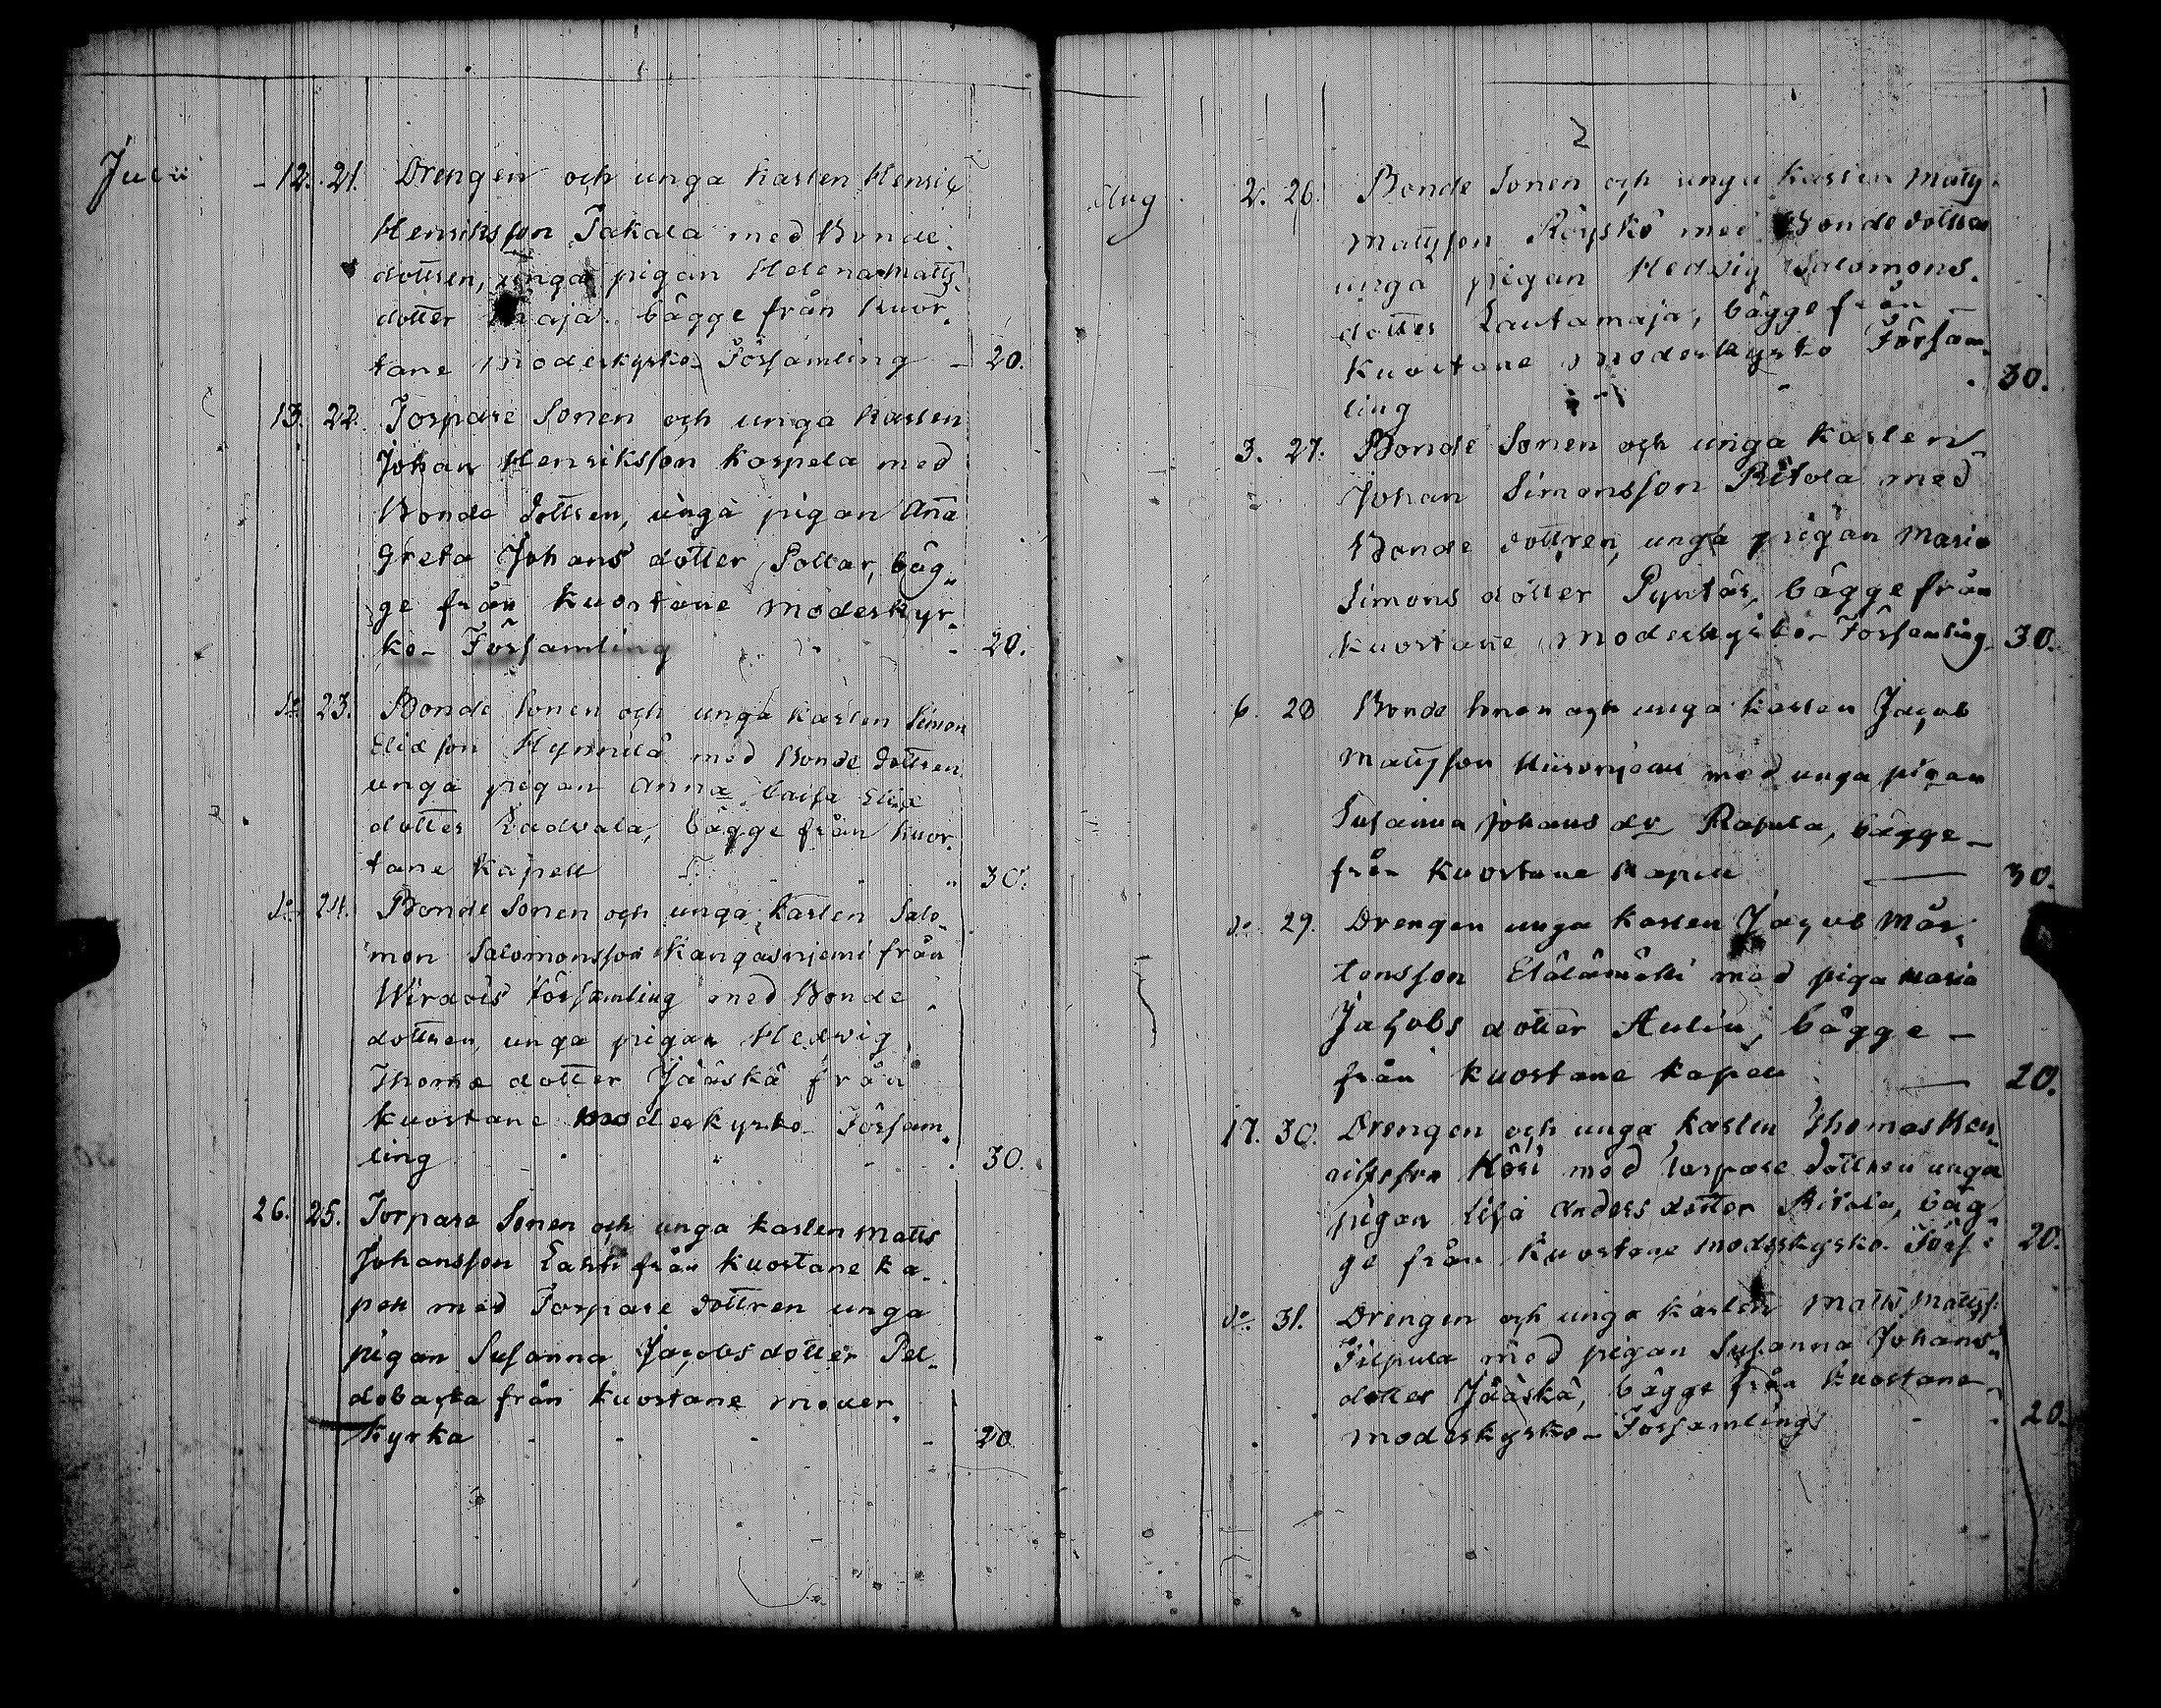 Julii - 12. 21. Drengen och unga karlen Henric
Henriksson Takala med Bonde
dottren, unga pigan Helena Matts
dotter Maja bägge från Kuor-
tane moderkyrko Församling - 20.
13. 22. Torpare Sonen och unga karlen
Johan Henriksson Korpela med
Bonde dottren, unga pigan Anna
Greta Johans dotter Pollar, bäg-
ge från Kuortane moderkyr-
ko- Församling - 20.
do 23. Bonde Sonen och unga karlen Simon
Eliæ son Hynnilä med Bonde dottren
unga pigan Anna Caisa Eliæ
dotter Ladvala, bägge från Kuor-
tane Kapell " 30.
do 24. Bonde Sonen och unga karlen Salo-
mon Salomonsson Kangasnjemi från
Wirdois Församling med Bonde
dottren, unga pigan Hedvig
Thomæ dotter Jääskä från
Kuortane moderkyrko Försam-
ling - 30.
26. 25. Torpare Sonen och unga karlen Matts
Johansson Lahti från Kuortane Ka-
pell med Torpare dottren unga
pigan Susanna Jacobs dotter Pel-
dobacka från Kuortane moder
kyrka - - - - 20
2
Aug. 2. 26. Bonde Sonen och unga karlen Matts
Mattsson Röyskö med Bonde dottren
unga pigan Hedvig Salomons
dotter Lautamaja, bägge från
Kuortane moderkyrko Försam-
ling - 30.
3. 27. Bonde Sonen och unga karlen
Johan Simonsson Ritola med
Bonde dottren, unga pigan Maria
Simons dotter Pyntär, bägge från
Kuortane moderkyrko- Församling 30.
6. 28 Bonde Sonen och unga karlen Jacob
Mattsson med unga pigan
Susanna Johans dr Rapula, bägge -
från Kuortane Kapell — 30.
do 29. Drengen unga karlen Jacob Mår-
tensson Elälämäki med piga Maria
Jacobs dotter Aulin, bägge -
från Kuortane Kapell — 20.
17. 30. Drengen och unga karlen Thomas Hen-
ricsson Kösi med Torpare dottren unga
pigan Lisa Anders dotter Ritola, bäg-
ge från Kuortane moderkyrko- Förs: 20.
do 31. Drengen och unga karlen Matts Mattss:
Filpula med pigan Susanna Johans
dotter Jääskä, bägge från Kuortane
moderkyrko- Församling - - 20.